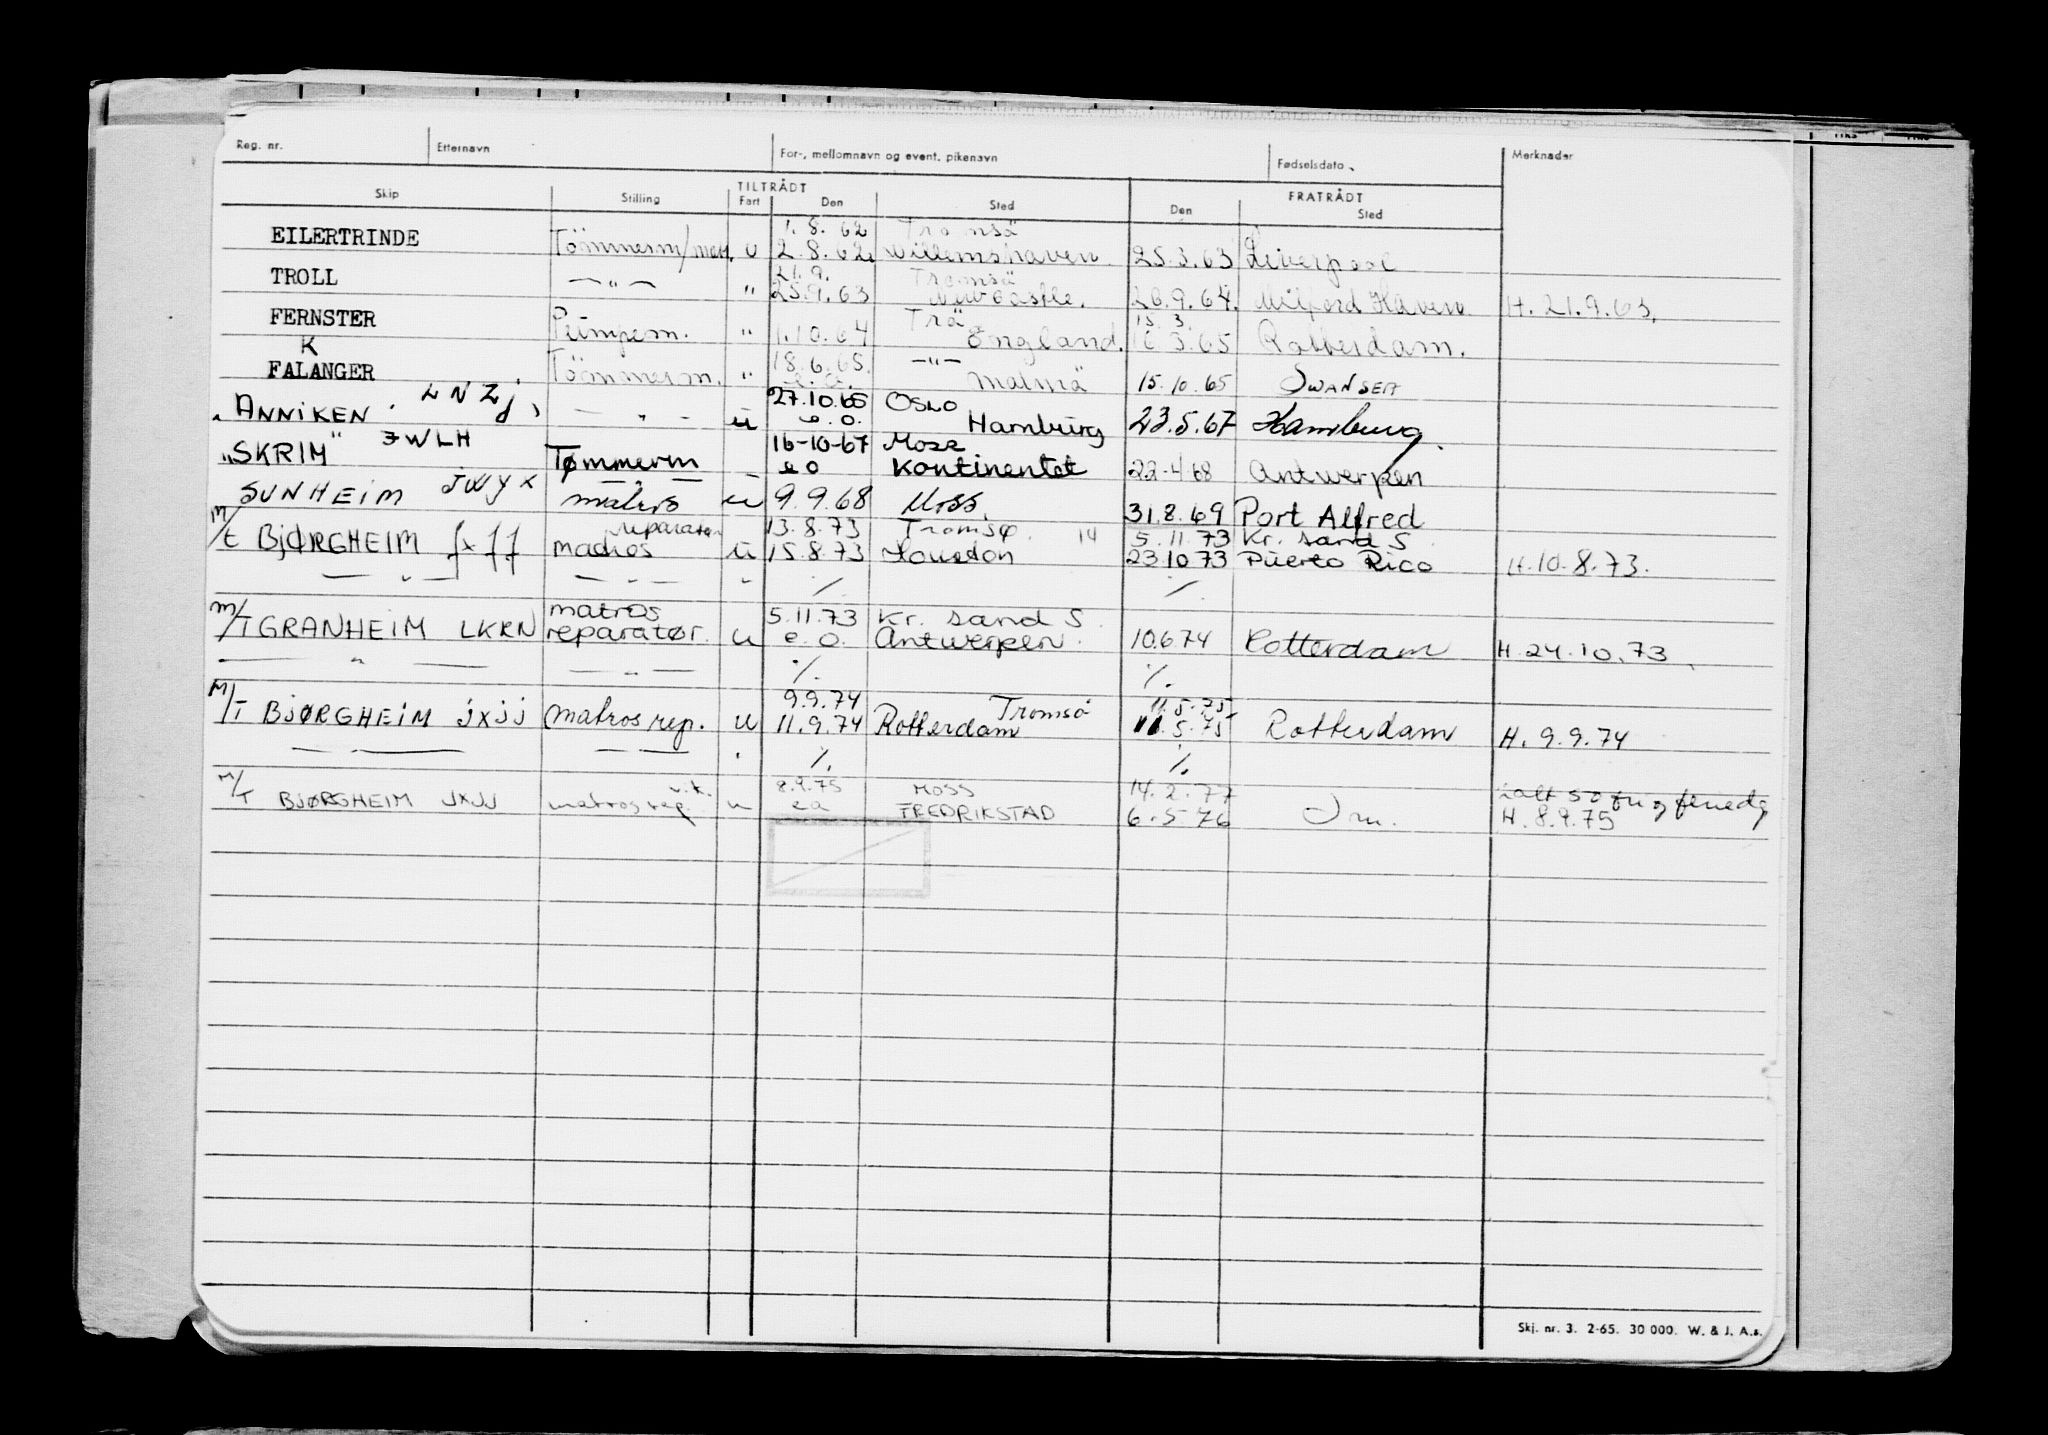 Reg. nr. Etternavn For-, mellomnavn og event. pikenavn Fødselsdato Merknader
TILTRÅDT FRATRÅDT
Skip Stilling Fart Den Sted Den Sted
1.8.62 Tromsä
EILERTRINDE Tömmerm/mat. u 2.8.62 Willemshaven 25.3.63 Liverpool
21.9. Tromsä
TROLL — " — " 25.9.63 Newcastle. 20.9.64. Milford Haven H. 21.9.63.
Trä 15.3.
FERNSTER Pumpem. " 1.10.64 England. 16.3.65 Rotterdam.
K 18.6.65. —"—
FALANGER Tömmerm. " e.o. Malmä 15.10.65 SWANSEA
27.10.65 OSLO
"ANNIKEN" LNZj — " — u e.o. Hamburg 23.5.67 Hamburg.
16-10-67 Moss
"SKRIM" JWLH Tømmerm — e o Kontinentet 22-4-68 Antwerpen
SUNHEIM JWYX matros u 9.9.68 Moss. 31.8.69 Port Alfred
reparatør 13.8.73 Tromsø. 14 5.11.73 Kr. sand S
M/t BJØRGHEIM JXJJ matros u 15.8.73 Houston 23.10.73 Puerto Rico H. 10.8.73.
— " — — " — " /. /.
matros 5.11.73 Kr. sand S.
M/T GRANHEIM LKRN reparatør. u e.o. Antwerpen. 10.6.74 Rotterdam H. 24.10.73.
— " — — " — /. /.
9.9.74 Tromsö 11.5.75
M/T BJØRGHEIM JXJJ matros rep. u 11.9.74 Rotterdam 11.5.75 Rotterdam H. 9.9.74
— — — — /. /.
8.9.75 MOSS 14.2.77
M/T BJØRGHEIM JXJJ matros rep. u ea FREDRIKSTAD 6.5.76 H. 8.9.75
Skj. nr. 3. 2-65. 30 000. W. & J. A.s.